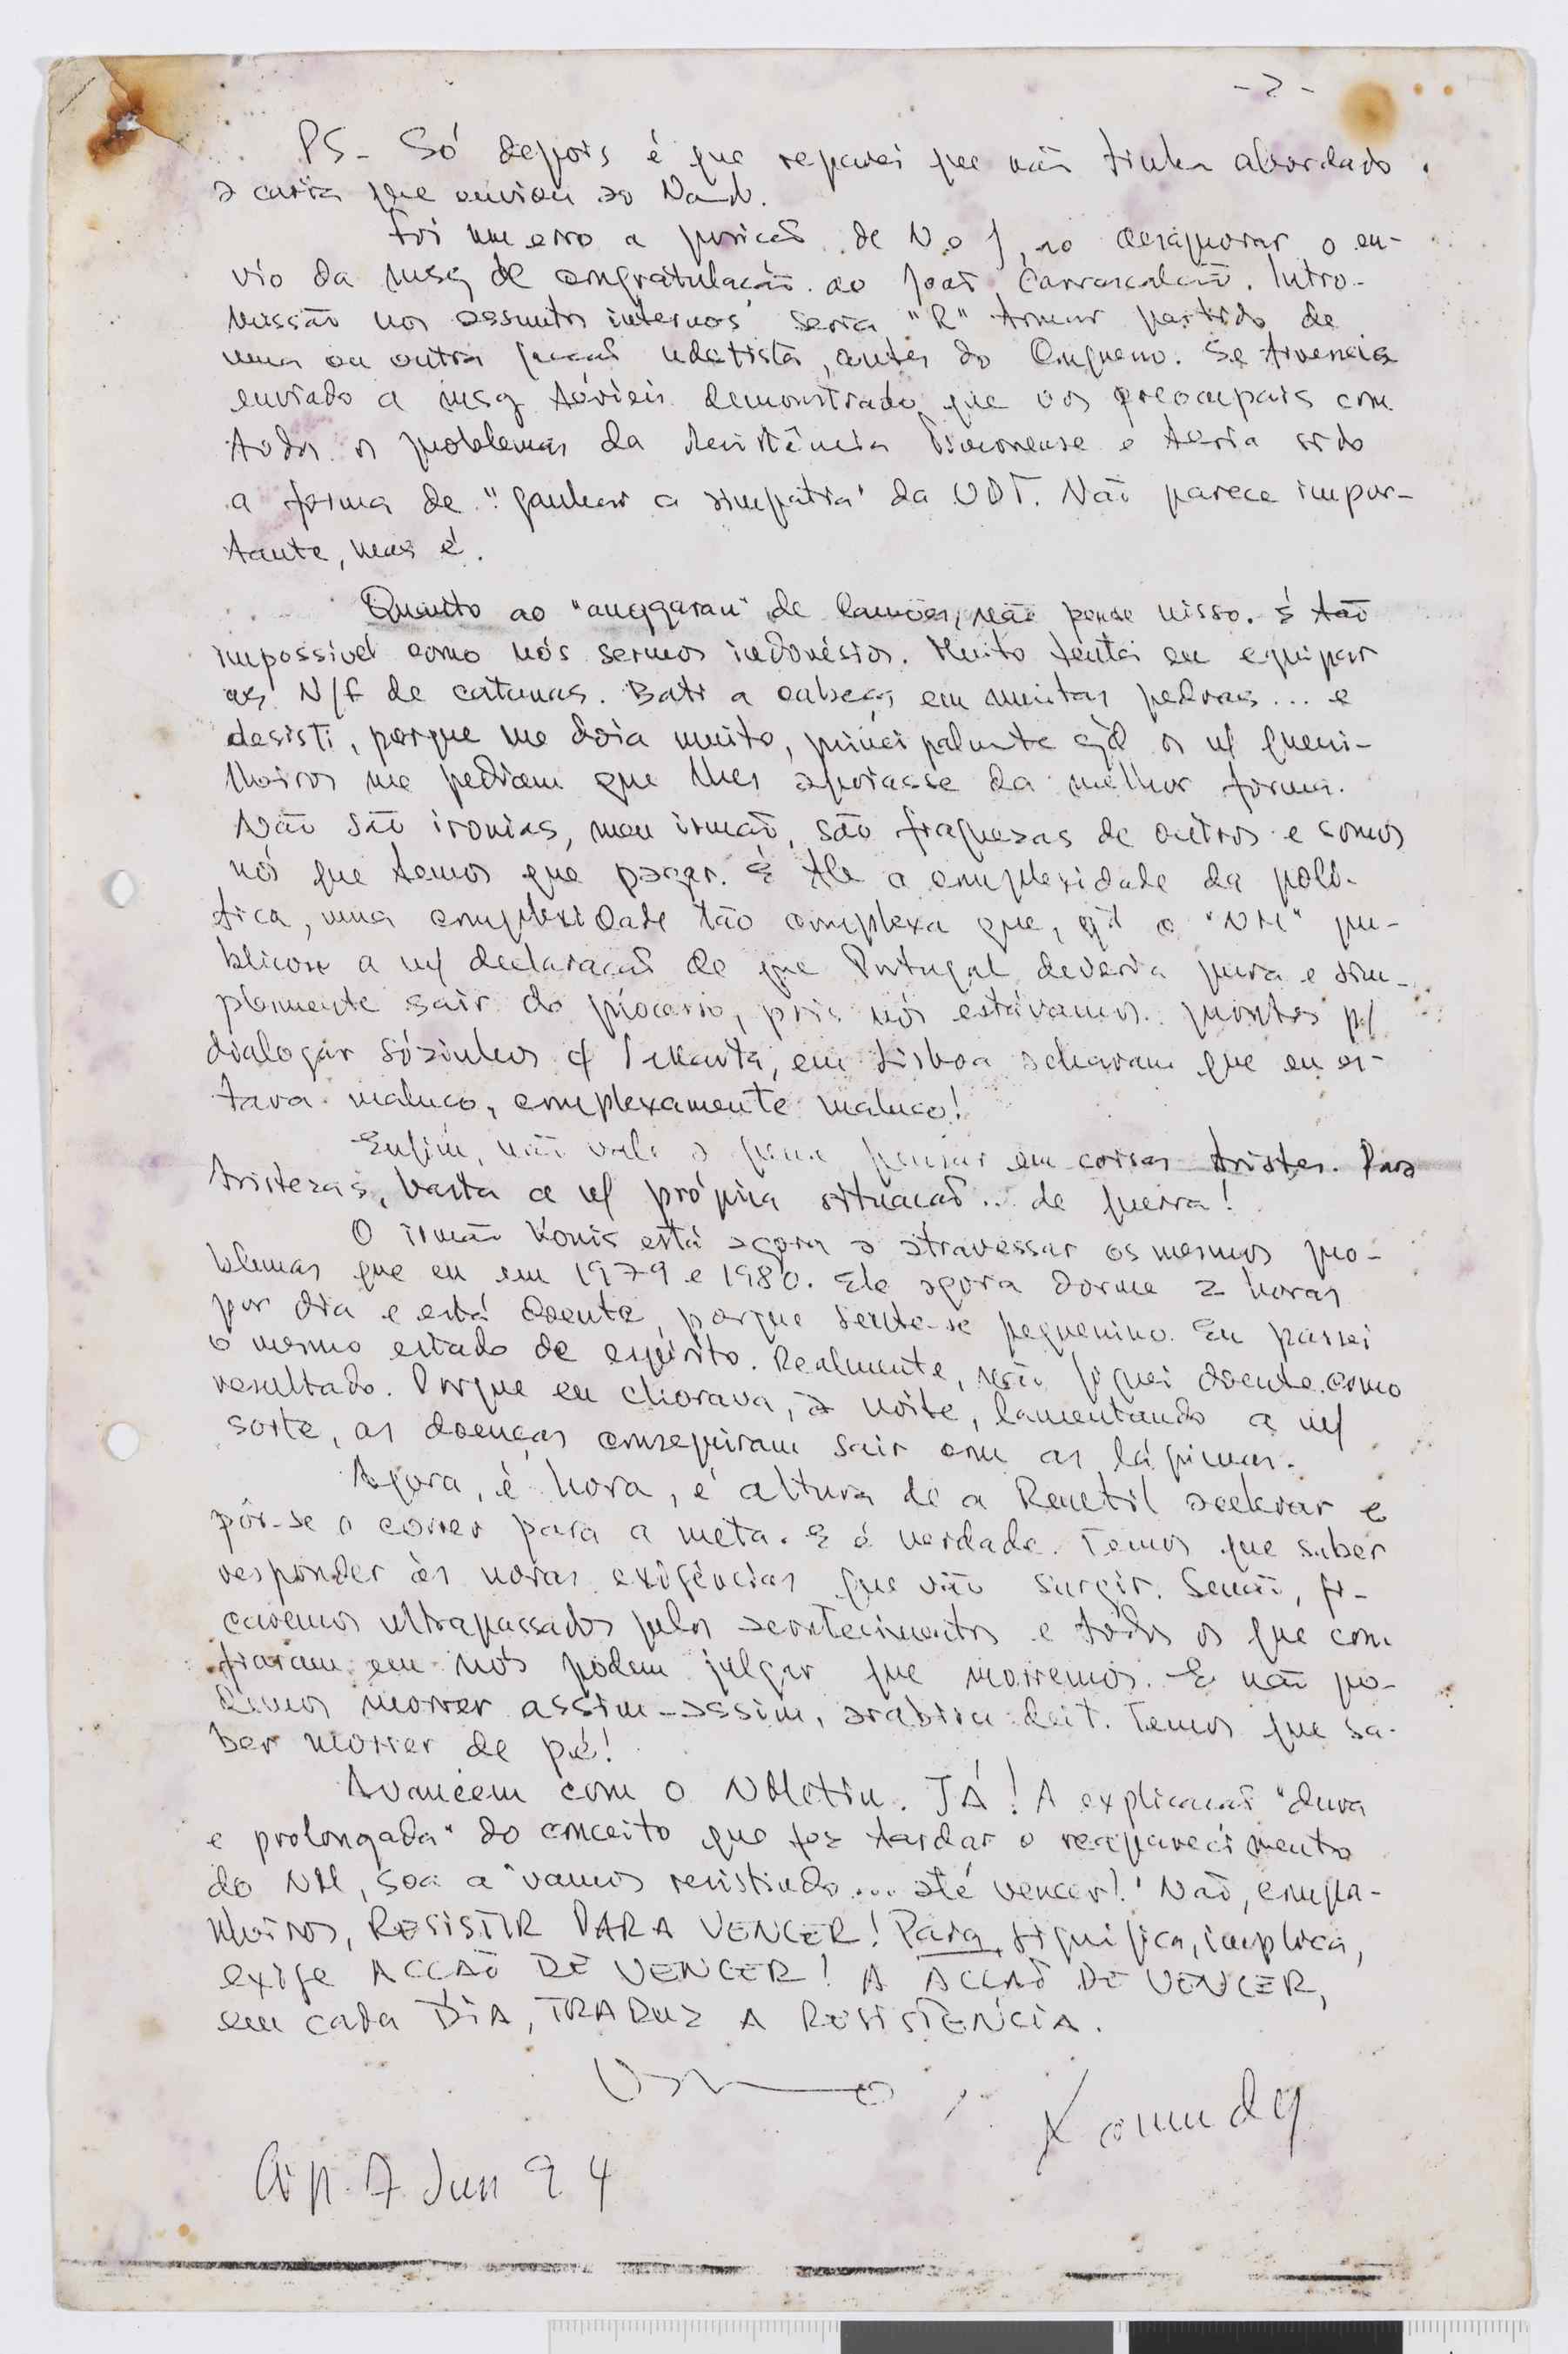 - 2 -
PS - Só depois é que reparei que não tinha abordado
a carta que enviou ao Nando.
Foi um erro a posição de N. e J, ao desaprovar o en-
vio da msg de congratulação ao João Carrascalão. Intro-
missão nos assuntos internos seria "R" tomar partido de
uma ou outra facção udetista, antes do Congresso. Se tivesseis
enviado a msg teríeis demonstrado que vos preocupais com
todos os problemas da Resistência Timorense e teria sido
a forma de "ganhar a simpatia" da UDT. Não parece impor-
tante, mas é.
Quanto ao "anggaran" de Camões, não pense nisso. É tão
impossível como nós sermos indonésios. Muito tentei eu equipar
as N/F de catanas. Bati a cabeça em muitas pedras... e
desisti, porque me doía muito, principalmente qd os n/ guerri-
lheiros me pediam que lhes apoiasse da melhor forma.
Não são ironias, meu irmão, são fraquezas de outros e somos
nós que temos que pagar. É tal a complexidade da polí-
tica, uma complexidade tão complexa que, qd o "NM" pu-
blicou a m/ declaração de que Portugal deveria pura e sim-
plesmente sair do processo, pois nós estávamos prontos p/
dialogar sózinhos c/ Jakarta, em Lisboa acharam que eu es-
tava maluco, complexamente maluco!
Enfim, não vale a pena pensar em coisas tristes. Para
tristezas, basta a n/ própria situação... de guerra!
O irmão Konis está agora a atravessar os mesmos pro-
blemas que eu em 1979 e 1980. Ele agora dorme 2 horas
por dia e está doente, porque sente-se pequenino. Eu passei
o mesmo estado de espírito. Realmente, não fiquei doente como
resultado. Porque eu chorava, à noite, lamentando a m/
sorte, as doenças conseguiram sair com as lágrimas.
Agora, é hora, é altura de a Renetil acelerar e
pôr-se a correr para a meta. E é verdade. Temos que saber
responder às novas exigências que vão surgir. Senão, fi-
caremos ultrapassados pelos acontecimentos e todos os que con-
fiaram em nós podem julgar que morremos. E não po-
demos morrer assim-assim, arabiru deit. Temos que sa-
ber morrer de pé!
Avancem com o NMetin. JÁ! A explicação "dura
e prolongada" do conceito que fez tardar o reaparecimento
do NM, soa a "vamos resistindo... até vencer!" Não, compa-
nheiros, RESISTIR PARA VENCER! Para significa, implica,
exige ACÇÃO DE VENCER! A ACÇÃO DE VENCER,
em cada DIA, TRADUZ A RESISTÊNCIA.
Cip. 7 Jun 94